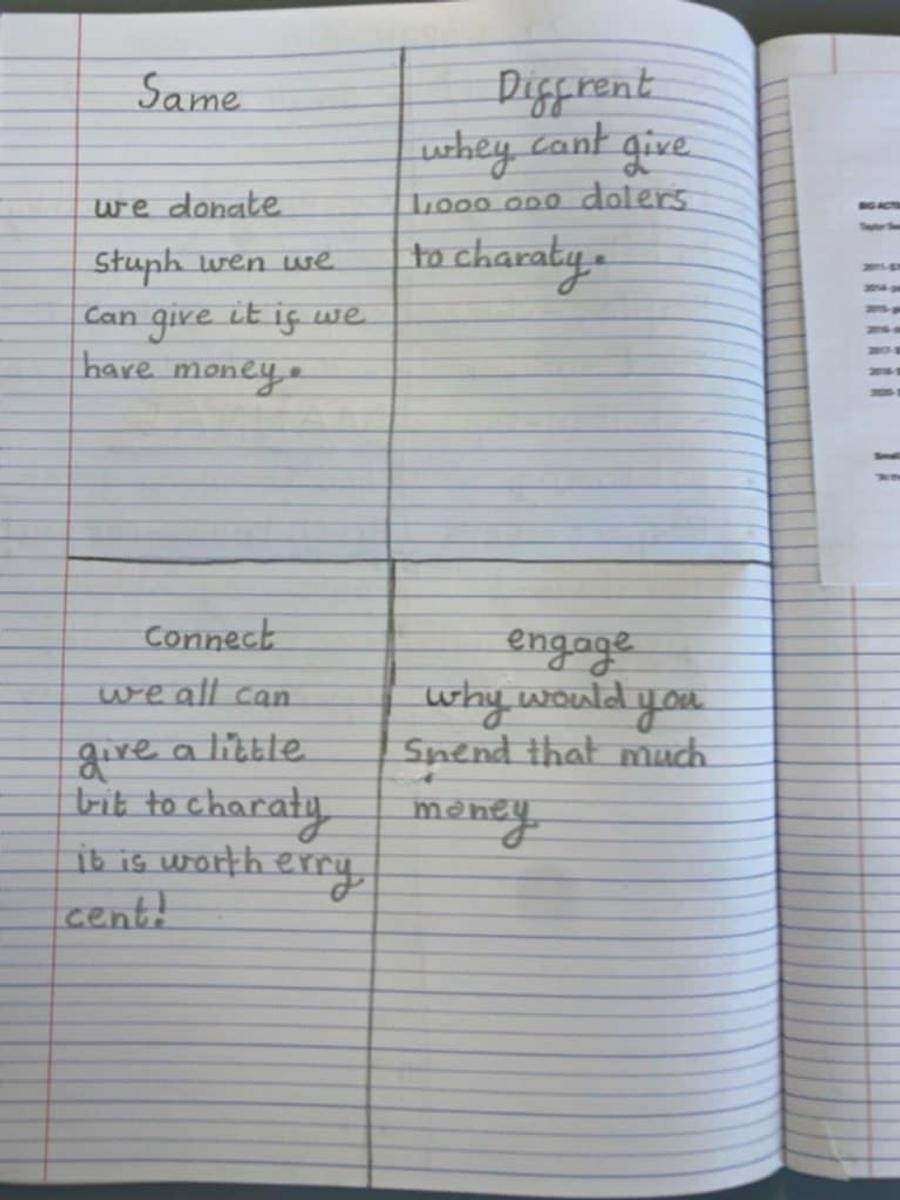 Same
we donate
stuph wen we
can give it if we
have money.
Diffrent
whey cant give
1,000 000 dolers
to charaty.
connect
we all can
give a little
bit to charaty
it is worth erry
cent!
engage
why would you
Spend that much
money
BIG ACTS
2011-
2014-
2015-
2016-
2017-
2018-
2020-